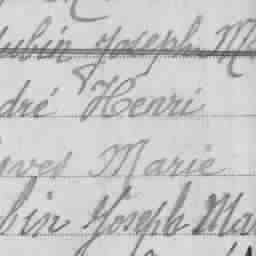 ubin Joseph Ma
dré Henri
yves Marie
bin Joseph Ma